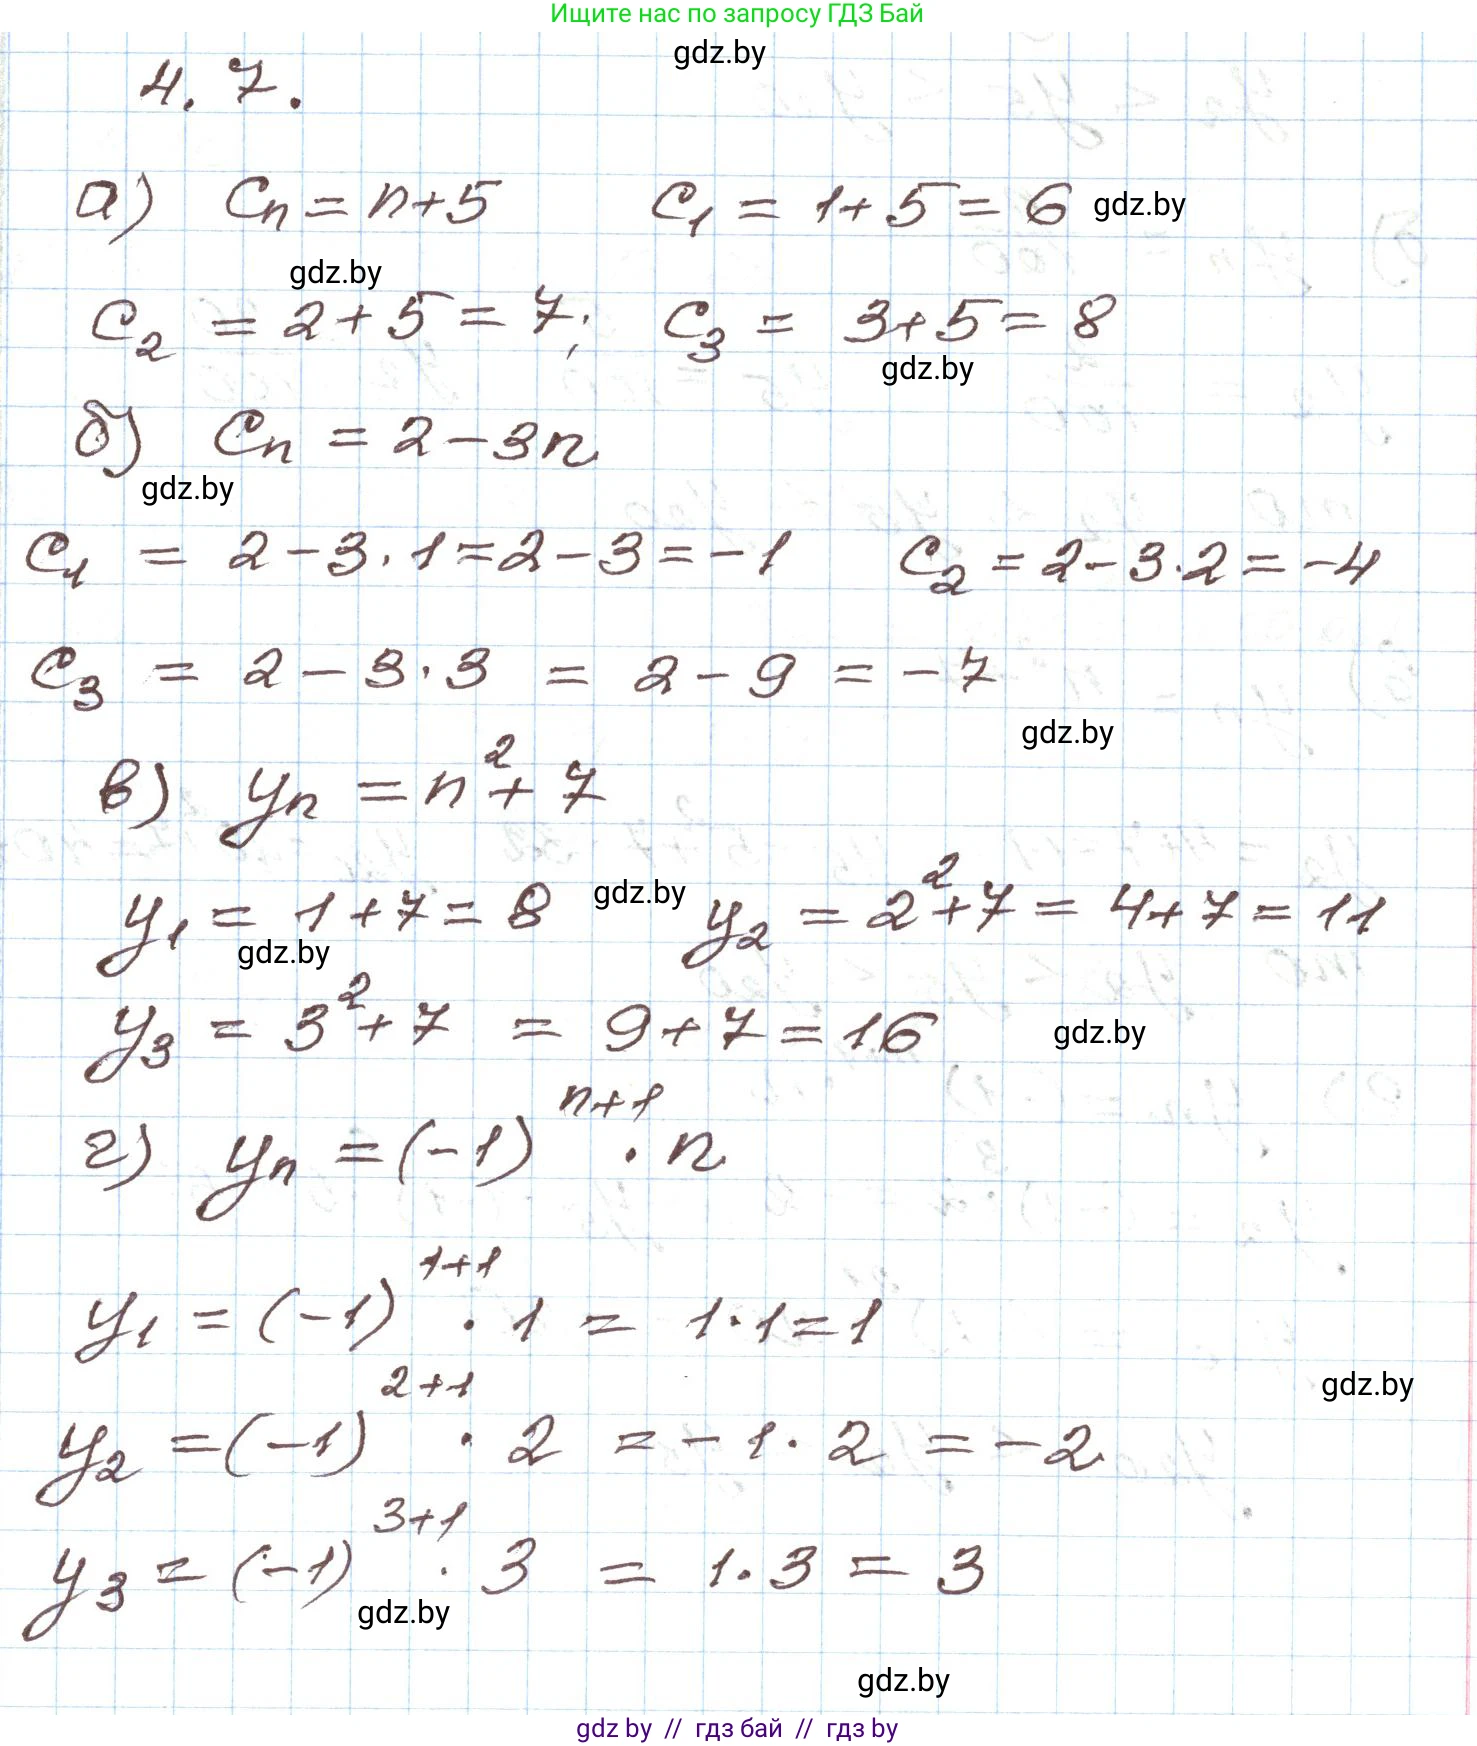 Ищите нас по запросу ГДЗ Бай
gdz.by
4.7.
а) Cₙ = n+5 C₁ = 1+5 = 6 gdz.by
gdz.by
C₂ = 2+5 = 7; C₃ = 3+5 = 8
gdz.by
б) Cₙ = 2-3n
gdz.by
C₁ = 2-3·1=2-3=-1 C₂ = 2-3·2=-4
C₃ = 2-3·3 = 2-9 = -7
gdz.by
в) yₙ = n²+7
y₁ = 1+7 = 8 gdz.by y₂ = 2²+7 = 4+7 = 11
gdz.by
y₃ = 3²+7 = 9+7 = 16 gdz.by
г) yₙ = (-1)ⁿ⁺¹ · n
y₁ = (-1)¹⁺¹ · 1 = 1·1 = 1
gdz.by
y₂ = (-1)²⁺¹ · 2 = -1·2 = -2
y₃ = (-1)³⁺¹ · 3 = 1·3 = 3
gdz.by
gdz.by
gdz by // гдз бай // гдз by